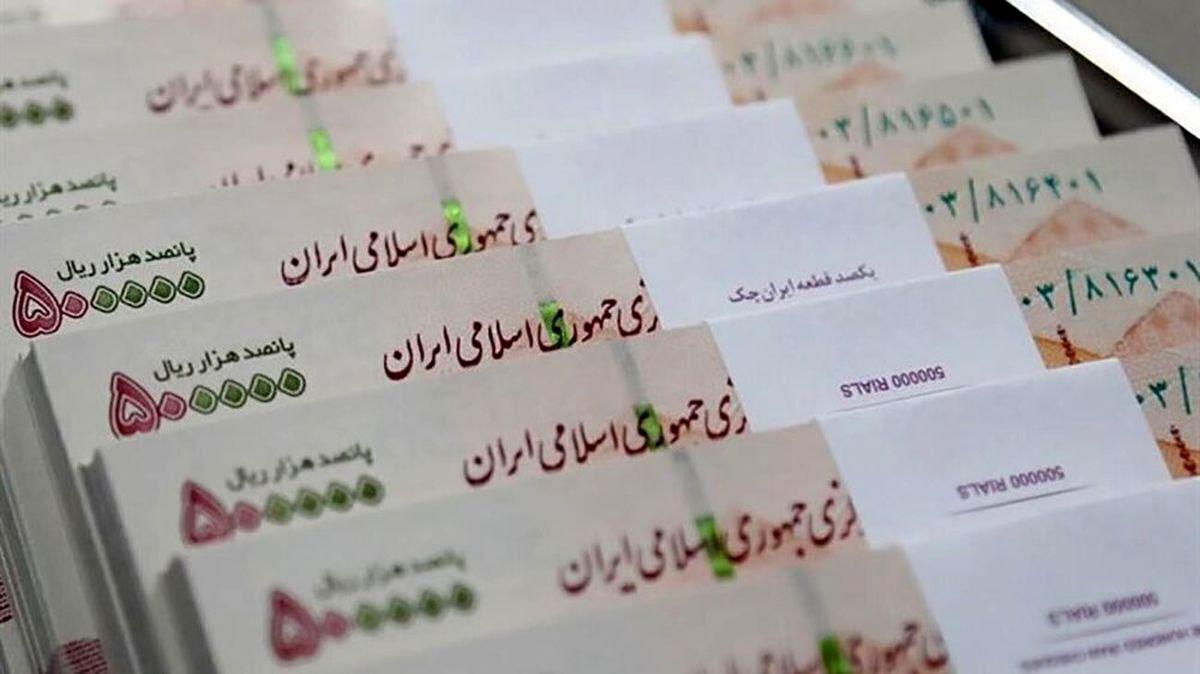 پانصد هزار ریال
جمهوری اسلامی ایران
۰۳/۸۱۶۶۰۱
پانصد هزار ریال
۰۳/۸۱۶۵۰۱
پانصد هزار ریال
۵۰۰۰۰۰
ری جمهوری اسلامی ایران
۰۳/۸۱۶۴۰۱
یکصد قطعه ایران چک
پانصد هزار ریال
۵۰۰۰۰۰
زی جمهوری اسلامی ایران
۰۳/۸۱۶۳۰۱
500000 RIALS
پانصد هزار ریال
۵۰۰۰۰۰
زی جمهوری اسلامی ایران
۰۳/
500000 RIALS
پانصد هزار ریال
۵۰۰۰۰۰
کزی جمهوری اسلامی ایران
500000 RIALS
HUNDRED IRAN CHEQUES